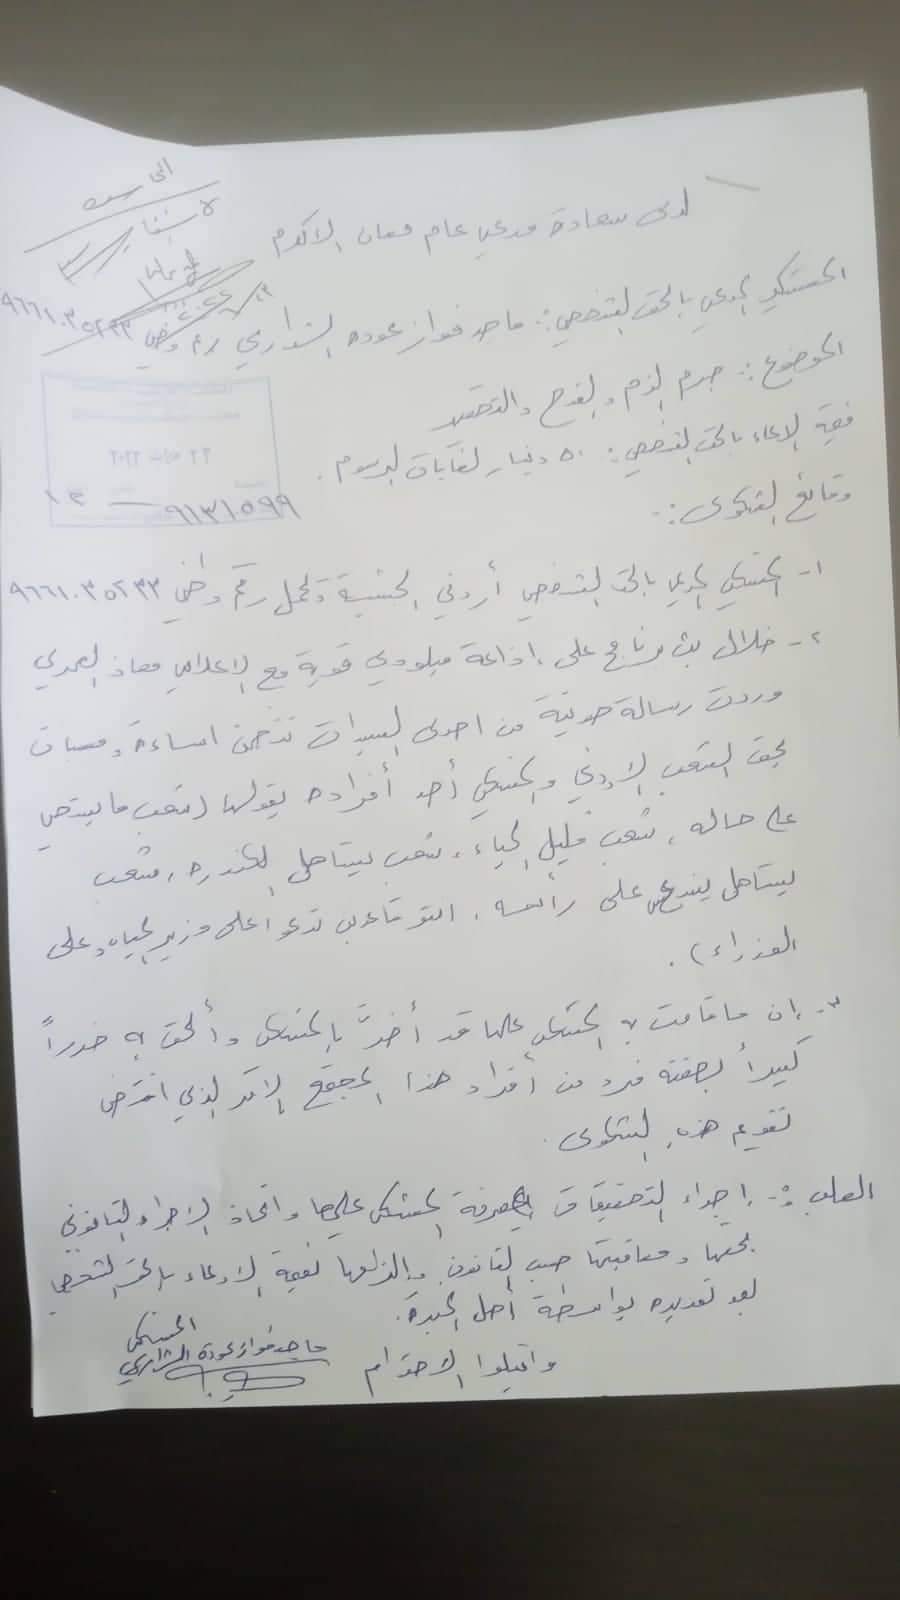 لدى سعادة مدعي عام معان الاكرم
المشتكي المدعي بالحق الشخصي: ماجد فواز عوده الشراري رقم وطني ٩٦٦١٠٣٥٢٣٣
الموضوع: جرم الذم والقدح والتحقير
قيمة الادعاء بالحق الشخصي: ٥٠ دينار لغايات الرسوم.
٩١٣١٥٩٩
وقائع الشكوى:-
١- المشتكي المدعي بالحق الشخصي أردني الجنسية ويحمل رقم وطني ٩٦٦١٠٣٥٢٣٣
٢- خلال بث برنامج على اذاعة ميلودي قوية مع الاعلامي معاذ العمري
وردت رسالة صوتية من احدى السيدات تتضمن اساءة ومساس
بحق الشعب الأردني والمشتكي أحد أفراده بقولها (شعب ما بيستحي
على حاله، شعب قليل الحياء، شعب بيستاهل الكندره، شعب
بيستاهل ينعدعس على رأسه، انتو قاعدين تدعوا على وزير المياه وعلى
الوزراء).
٣- إن ما قامت به المشتكى عليها قد أضرّ بالمشتكي وألحق به ضرراً
كبيراً بصفته فرد من أفراد هذا المجتمع الأمر الذي اقتضى
تقديم هذه الشكوى.
الطلب:- إجراء التحقيقات لمعرفة المشتكى عليها واتخاذ الاجراء القانوني
بحقها ومعاقبتها حسب القانون والزامها بقيمة الادعاء بالحق الشخصي
بعد تقديره بواسطة أهل الخبرة.
واقبلوا الاحترام
المشتكي
ماجد فواز عودة الشراري